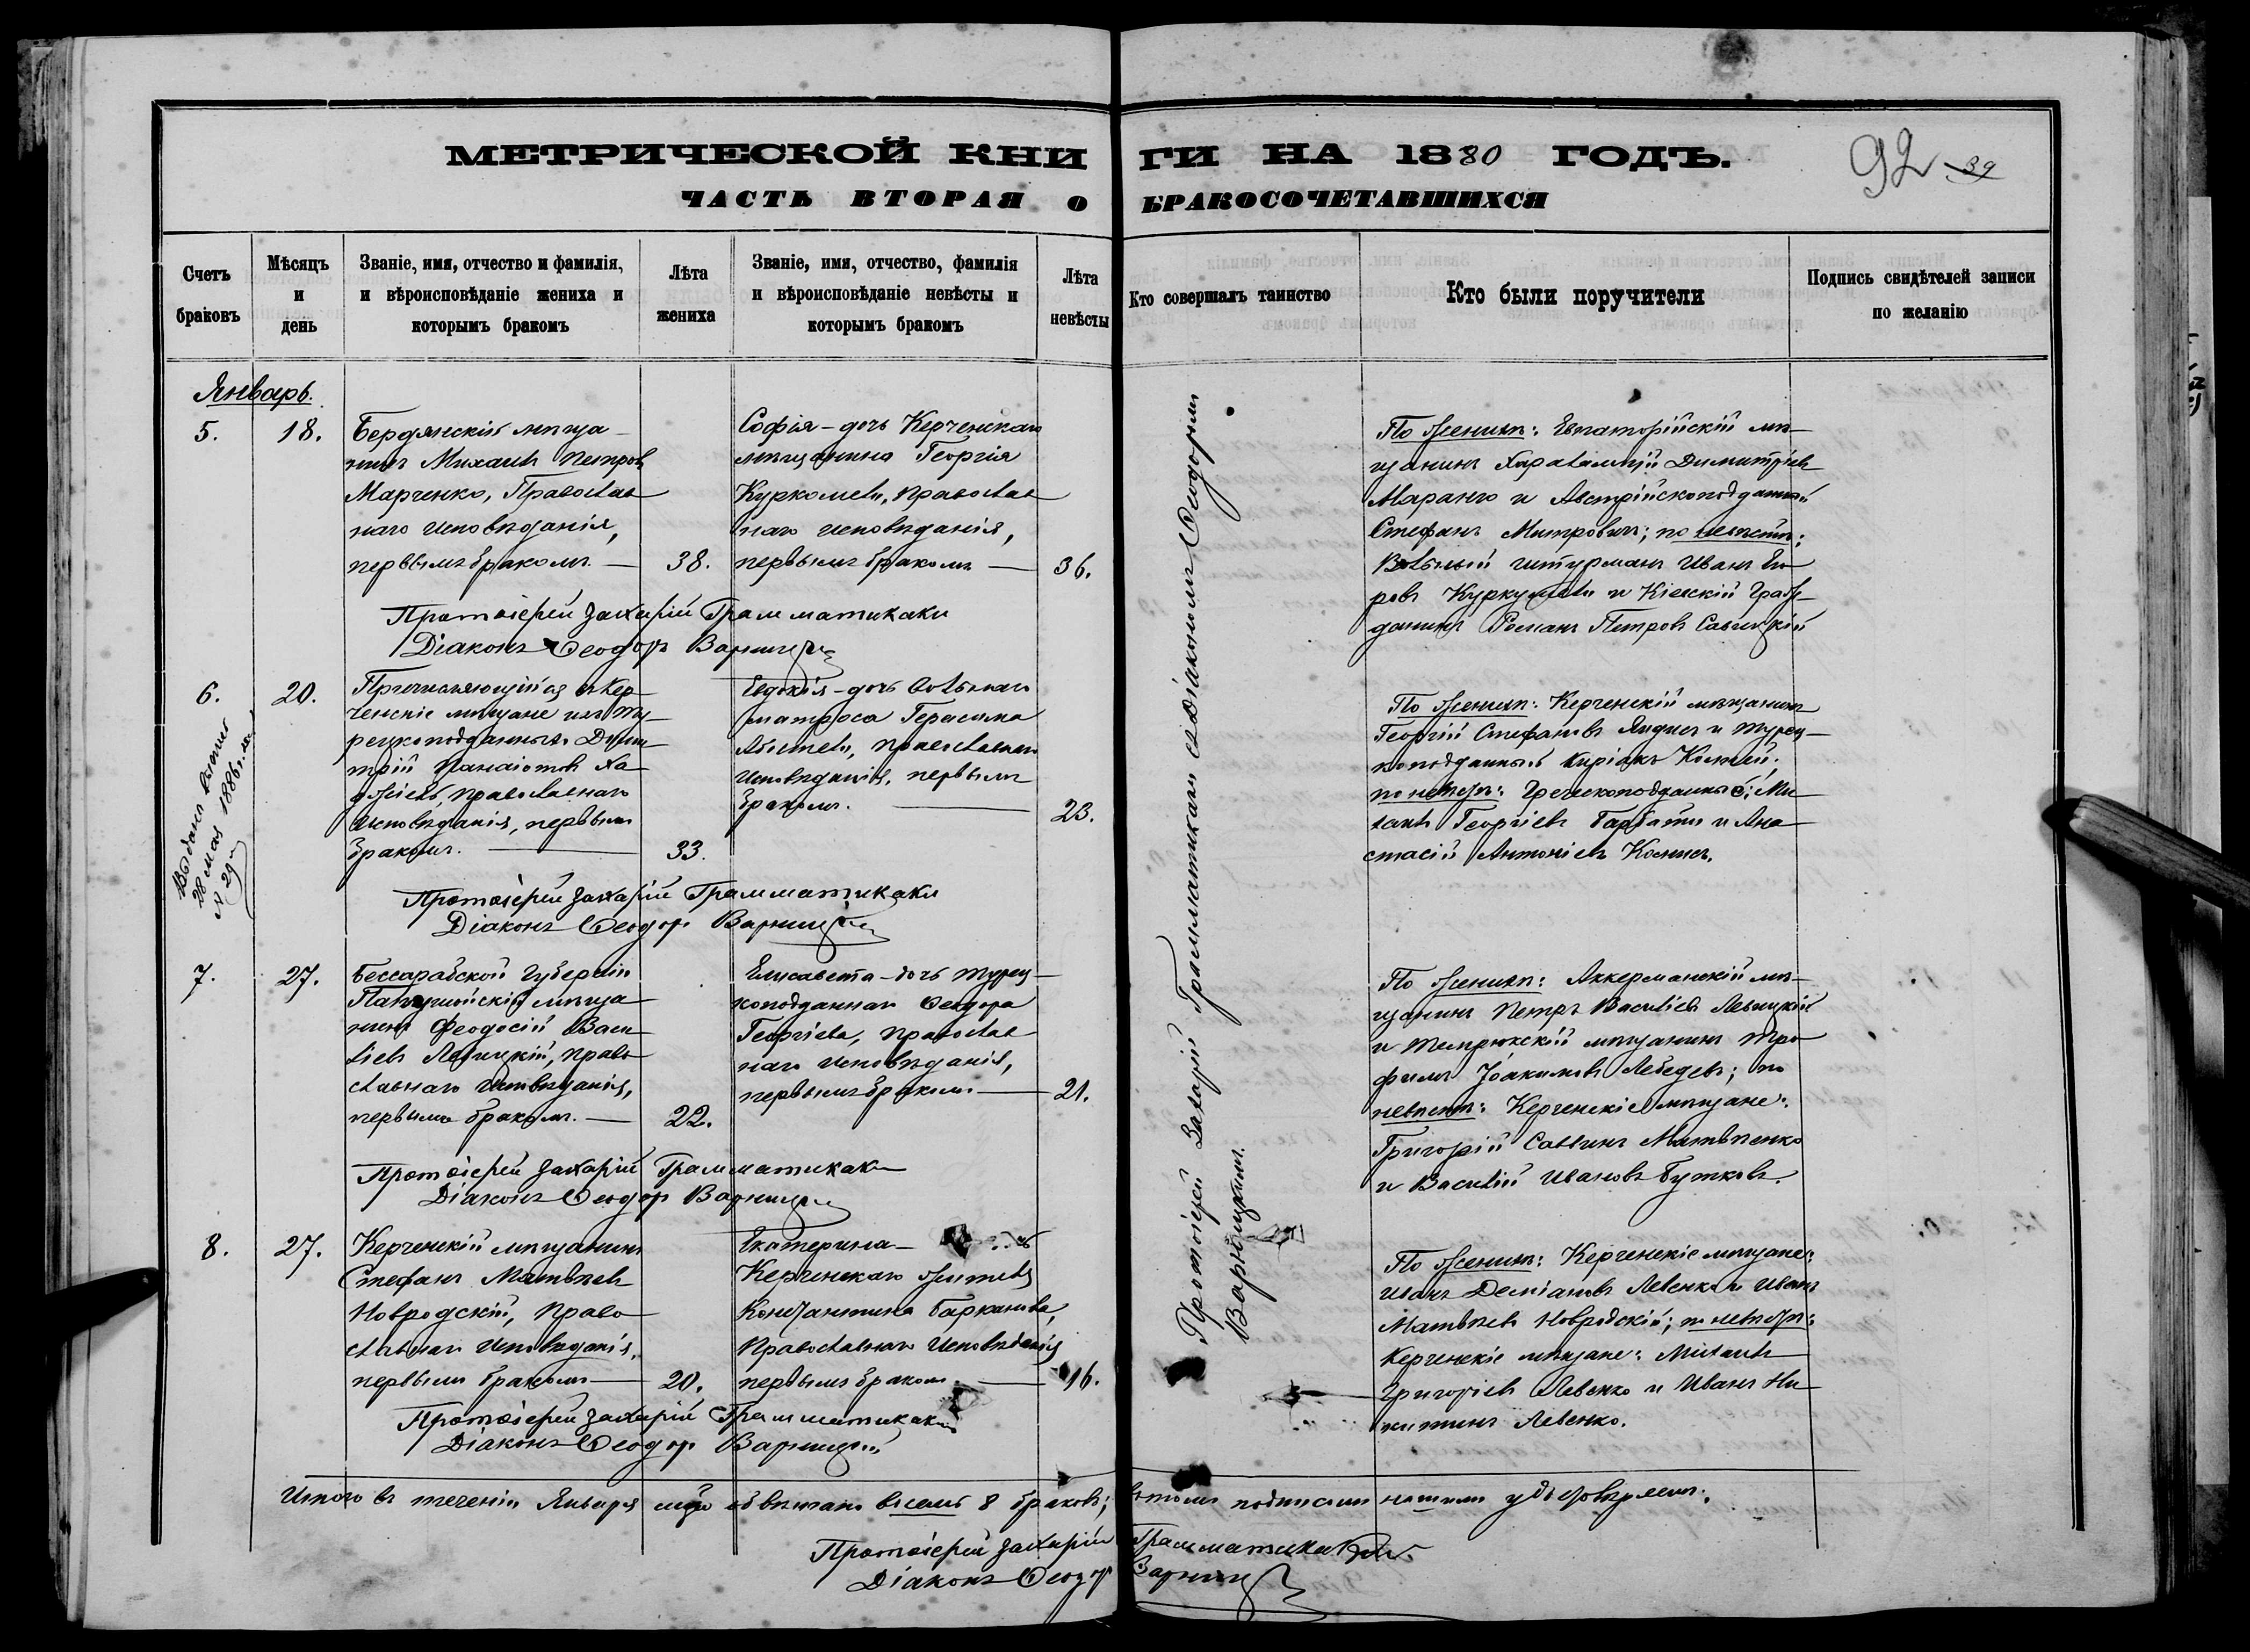 МЕТРИЧЕСКОЙ КНИГИ НА 1880 ГОДЪ.
92 39
ЧАСТЬ ВТОРАЯ О БРАКОСОЧЕТАВШИХСЯ
Счетъ браковъ
Мѣсяцъ и день
Званіе, имя, отчество и фамилія,
и вѣроисповѣданіе жениха и
которымъ бракомъ
Лѣта жениха
Званіе, имя, отчество, фамилія
и вѣроисповѣданіе невѣсты и
которымъ бракомъ
Лѣта невѣсты
Кто совершалъ таинство
Кто были поручители
Подпись свидѣтелей записи
по желанію
Январь.
5.
18.
Бердянскій мѣща-
нинъ Михаилъ Петровъ
Марченко, Православ
наго исповѣданія,
первымъ бракомъ. —
38.
Софія – дочь Керченскаго
мѣщанина Георгія
Куркомели, православ
наго исповѣданія,
первымъ бракомъ —
36.
По женихѣ: Евпаторійскій мѣ-
щанинъ Харалампій Димитріевъ
Маранго и Австрійскоподданный
Стефанъ Митровичъ; по невѣстѣ:
Вольный штурманъ Иванъ Его
ровъ Куркумели и Кіевскій Граж-
данинъ Романъ Петровъ Савицкій
Протоіерей Захарій Грамматикаки
Діаконъ Ѳеодоръ Варницкій
6.
20.
Выдана
28 мая 1886 г.
№ 29
Причисляющійся въ Кер-
ченскіе мѣщане изъ Ту-
рецкоподданныхъ Дими-
трій Панаіотовъ Ха
джіевъ, православнаго
исповѣданія, первымъ
бракомъ. —
33.
Евдокія – дочь вольнаго
матроса Герасима
православнаго
исповѣданія, первымъ
бракомъ. —
23.
По женихѣ: Керченскій мѣщанинъ
Георгій Стефановъ и Турец-
коподданный Киріакъ
по невѣстѣ: Греческоподданные: Ми
хаилъ Георгіевъ и Ана
стасій Антоніевъ
Протоіерей Захарій Грамматикаки
Діаконъ Ѳеодоръ Варницкій
7.
27.
Бессарабской Губерніи
мѣща
нинъ Феодосій Васи
ліевъ Левицкій, право
славнаго исповѣданія,
первымъ бракомъ. —
22.
Елисавета – дочь Турец-
коподданнаго Ѳеодора
Георгіева, православ
наго исповѣданія,
первымъ бракомъ. —
21.
По женихѣ: Аккерманскій мѣ-
щанинъ Петръ Василіевъ Левицкій
и Темрюкскій мѣщанинъ Тро
фимъ Іоакимовъ Лебедевъ; по
невѣстѣ: Керченскіе мѣщане:
Григорій Саввинъ Матвѣенко
и Василій Ивановъ Бутковъ.
Протоіерей Захарій Грамматикаки
Діаконъ Ѳеодоръ Варницкій
8.
27.
Керченскій мѣщанинъ
Стефанъ Матвѣевъ
Новродскій, право
славнаго исповѣданія,
первымъ бракомъ —
20.
Екатерина –
Керченскаго жителя
Константина Барканова,
Православнаго исповѣданія
первымъ бракомъ. —
16.
По женихѣ: Керченскіе мѣщане:
Иванъ Деміановъ Левенко и Иванъ
Матвѣевъ Новродскій; по невѣстѣ:
Керченскіе мѣщане: Михаилъ
Григоріевъ Левенко и Иванъ Ни
китинъ Левенко.
Протоіерей Захарій Грамматикаки
Діаконъ Ѳеодоръ Варницкій
Протоіерей Захарій Грамматикаки съ Діакономъ Ѳеодоромъ
Варницкимъ.
Итого въ теченіи Января мца обвѣнчано восемь 8 браковъ; въ томъ подписами нашими удостовѣряемъ.
Протоіерей Захарій Грамматикаки.
Діаконъ Ѳеодоръ Варницкій